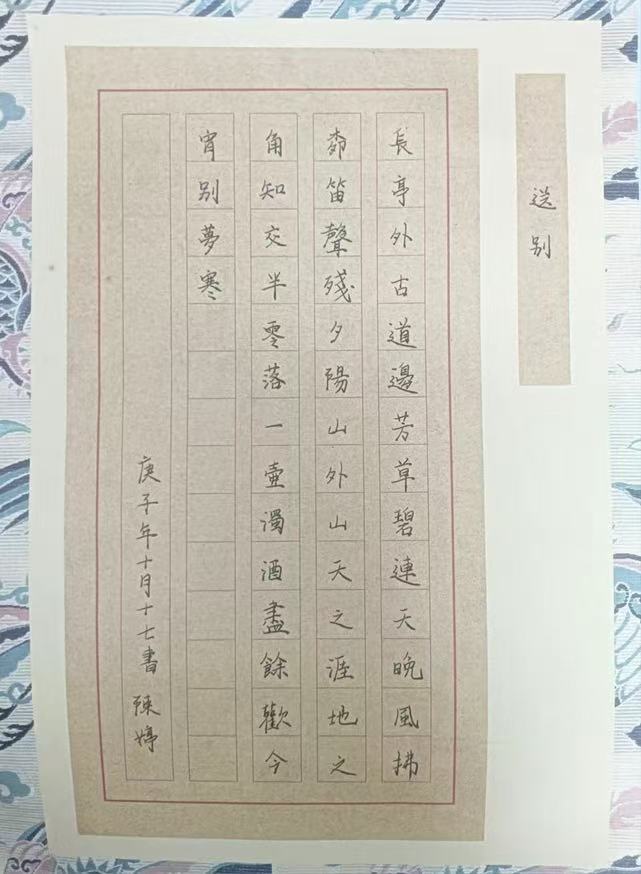 送别
長亭外古道邊芳草碧連天晚風拂
栁笛聲殘夕陽山外山天之涯地之
角知交半零落一壺濁酒盡餘歡今
宵别夢寒
庚子年十月十七書 陳婷